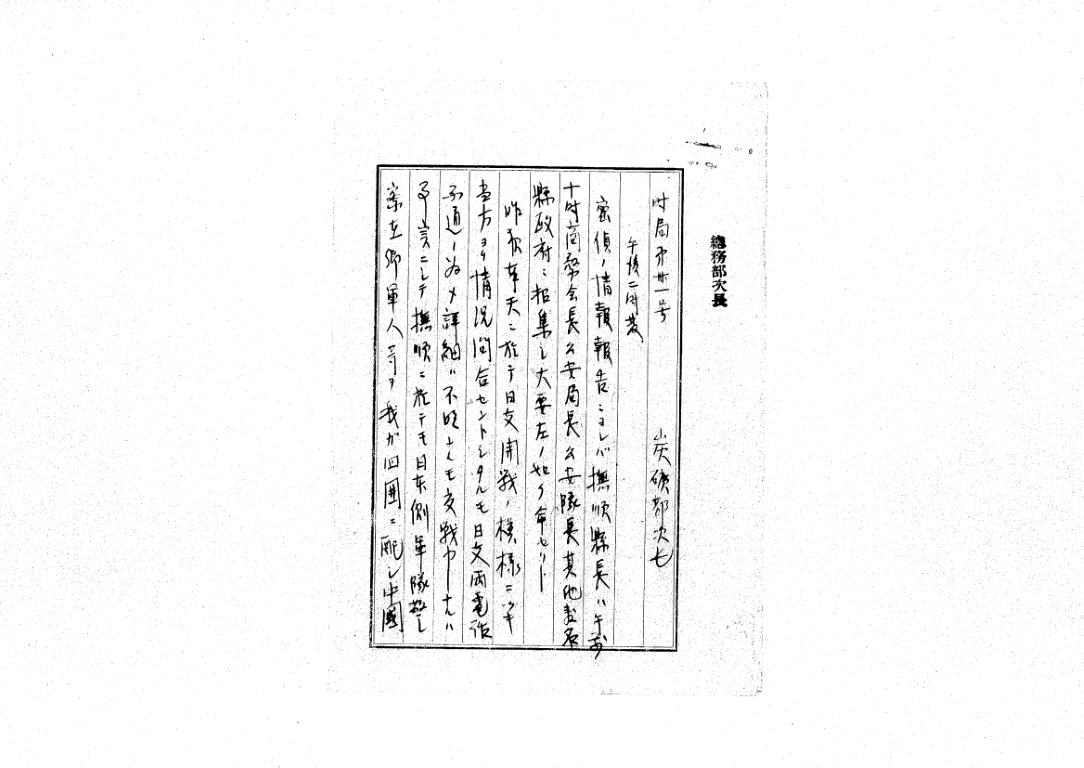 總務部次長
時局第廿一号　炭礦部次長
午後二時發
密偵ノ情報報告ニヨレバ撫順縣長ハ午前
十時商務会長公安局長公安隊長其他
縣政府ニ招集シ大要左ノ如ク命セリト
昨夜奉天ニ於テ日支開戰ノ模様ニツキ
当方ヨリ情況問合セントシタルモ日支両電話
不通ノ為メ詳細ハ不明ナルモ交戰中ナルハ
事実ニシテ撫順ニ於テモ日本側軍隊警
在郷軍人等ヲ我ガ四囲ニ配シ中國